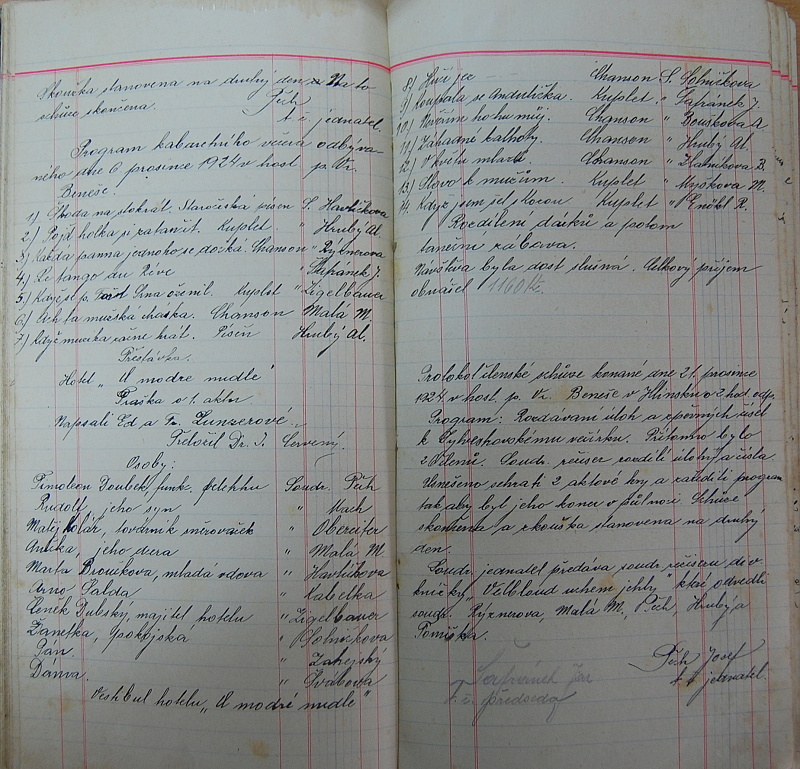 Zkouška stanovena na druhý den. Na to
schůze skončena.
Pech
t. č. jednatel.
Program kabaretního večera odbýva-
ného dne 6 prosince 1924 v host. p. Vr.
Beneše.
1) Škoda na stokrát. Staročeská píseň S. Havlíčkova
2.) Pojď holka si zatančit. Kuplet. " Hrubý Al.
3.) Každá panna jednoho se dočká. Chanson " Rýznerova
4.) Le tango du Rêve " Šafranek J.
5.) Když se p. oženil. Kuplet " Zigelbauer
6.) Ach ta mužská chaska. Chanson Malá M.
7.) Když muzika začne hrát. Píseň Hrubý Al.
Přestávka.
Hotel „U modré nudle"
Fraška o 1. aktu
Napsali Ed. a Fr. Lunzerové.
Přeložil Dr. J. Červený.
Osoby:
Timoleon Doubek, funk. Soudr. Pech
Rudolf, jeho syn " Mach
Matěj Kolář, továrník " Obereiter
Anička, jeho dcera " Malá M.
Marta Broučkova, mladá vdova " Havlíčkova
Arno Šalda " Kabelka
Čeněk Dubský, majitel hotelu " Zigelbauer
Žanetka, Spokojská " Solničkova
Pán. " Zahejský
Dáma. " Švábova
Vestibul hotelu „U modré nudle"
8) Hučí jez Chanson S. Solničkova
9) Koupala se Andulička. Kuplet. " Šafranek J.
10.) Nevěřím hochu můj. Chanson " Bouškova A
11.) Záhadné kalhoty. Chanson " Hrubý Al.
12.) V květu mládí Chanson " Zlatníkova B.
13.) Slovo k mužům. Kuplet " Myškova M.
14. Když jsem jel s Kocou Kuplet " Enökl R.
Rozdílení dárků a potom
taneční zábava.
Návštěva byla dost slušná. Celkový příjem
obnášel 1160 Kč.
Protokol členské schůze konané dne 21. prosince
1924 v host. p. Vr. Beneše v Hlinsku o 2 hod. odp.
Program: Rozdávaní úloh a zpěvných čísel
k Sylvestrovskému večírku. Přítomno bylo
členů. Soudr. režiser rozdílí úlohy a čísla.
Usnešeno sehrati 2 aktové hry a zařídili program
tak aby byl jeho konec v půlnoci. Schůze
skončena a zkouška stanovena na druhý
den.
Soudr. jednatel předáva soudr. režiseru div.
knížky „Velbloud uchem jehly" které odvedli
soudr. Rýznerova, Malá M., Pech, Hrubý a
Tomiška.
Pech Josef
t. č. jednatel.
Šafránek Jar
t. č. předseda